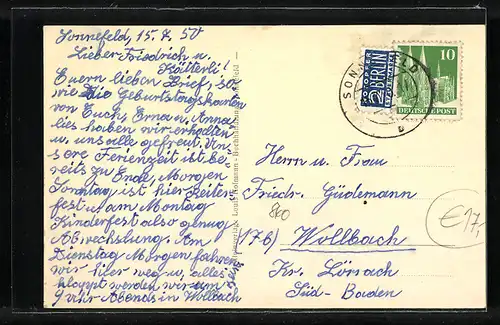 Sonnefeld, 15. 7. 50
Lieber Friedrich u.
Kätterli!
Euern lieben Brief, so
wie die Geburtstagskarten
von Euch, Erna u. Anna
lies haben wir erhalten
u. uns alle gefreut. Un
sere Ferienzeit ist be
reits zu Ende, Morgen
Sonntag, ist hier Reiter
fest u. am Montag
Kinderfest also genug
Abwechslung. Am
Dienstag Morgen fahren
wir hier weg u. alles
klappt werden wir um
9 Uhr Abends in Wollbach
SONNEFELD
b
NOTOPFER
2 BERLIN
STEUERMARKE
10
DEUTSCHE POST
Herrn u. Frau
Friedr. Güdemann
820
(17b) Wollbach
Kr. Lörrach
Süd-Baden
€17,